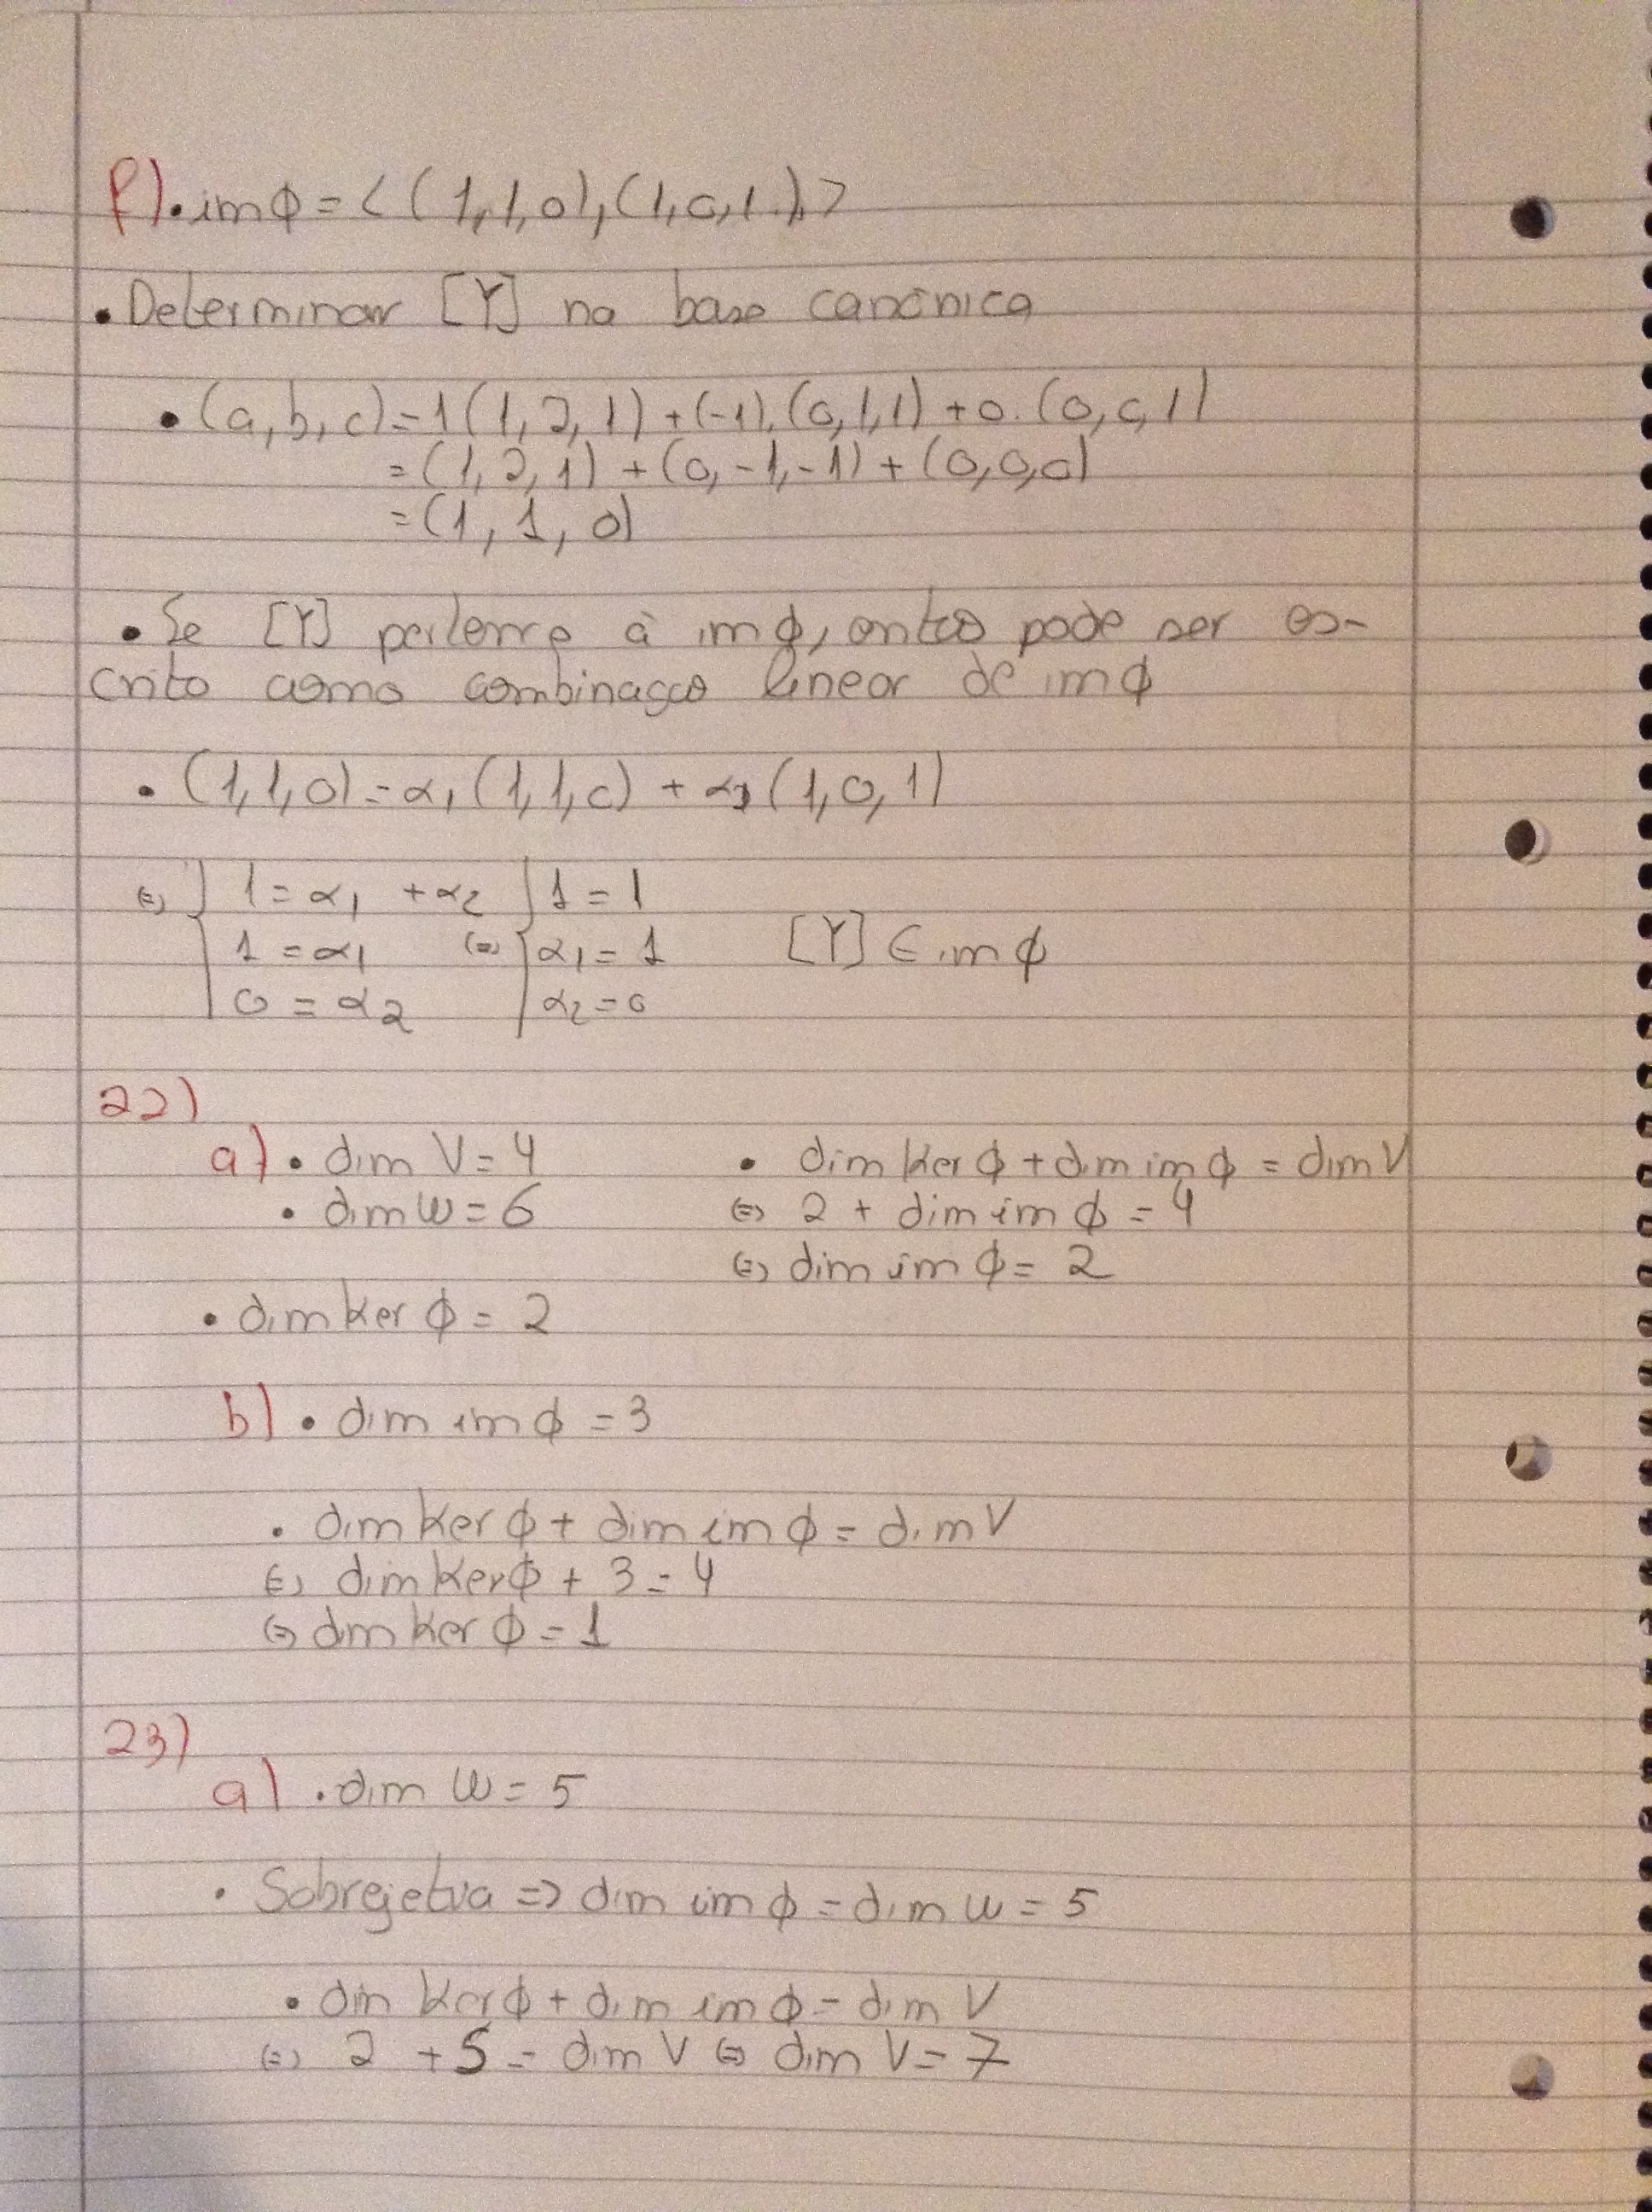 f) • im ϕ = < (1,1,0), (1,0,1) >
• Determinar [Y] na base canónica
• (a,b,c) = 1(1,2,1) + (-1).(0,1,1) + 0.(0,0,1)
= (1,2,1) + (0,-1,-1) + (0,0,0)
= (1,1,0)
• Se [Y] pertence à im ϕ, então pode ser es-
crito como combinação linear de im ϕ
• (1,1,0) = α₁(1,1,0) + α₂(1,0,1)
(=) { 1 = α₁ + α₂ { 1 = 1
1 = α₁ (=) α₁ = 1 [Y] ∈ im ϕ
0 = α₂ α₂ = 0
22)
a) • dim V = 4 • dim Ker ϕ + dim im ϕ = dim V
• dim W = 6 (=) 2 + dim im ϕ = 4
(=) dim im ϕ = 2
• dim Ker ϕ = 2
b) • dim im ϕ = 3
• dim Ker ϕ + dim im ϕ = dim V
(=) dim Ker ϕ + 3 = 4
(=) dim Ker ϕ = 1
23)
a) • dim W = 5
• Sobrejetva => dim im ϕ = dim W = 5
• dim Ker ϕ + dim im ϕ = dim V
(=) 2 + 5 = dim V (=) dim V = 7